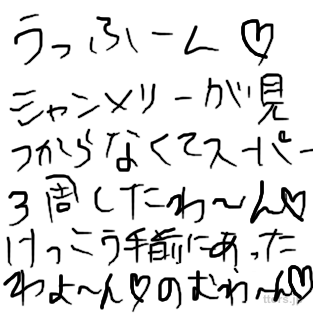 うっふーん♡
シャンメリーが見
つからなくてスーパー
3周したわ〜ん♡
けっこう手前にあった
わよ〜ん♡のむわ〜ん♡